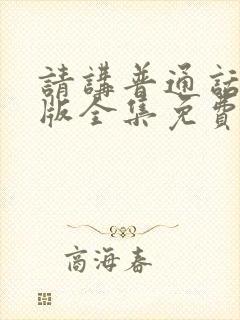 請講普通話
版全集免費
商海春